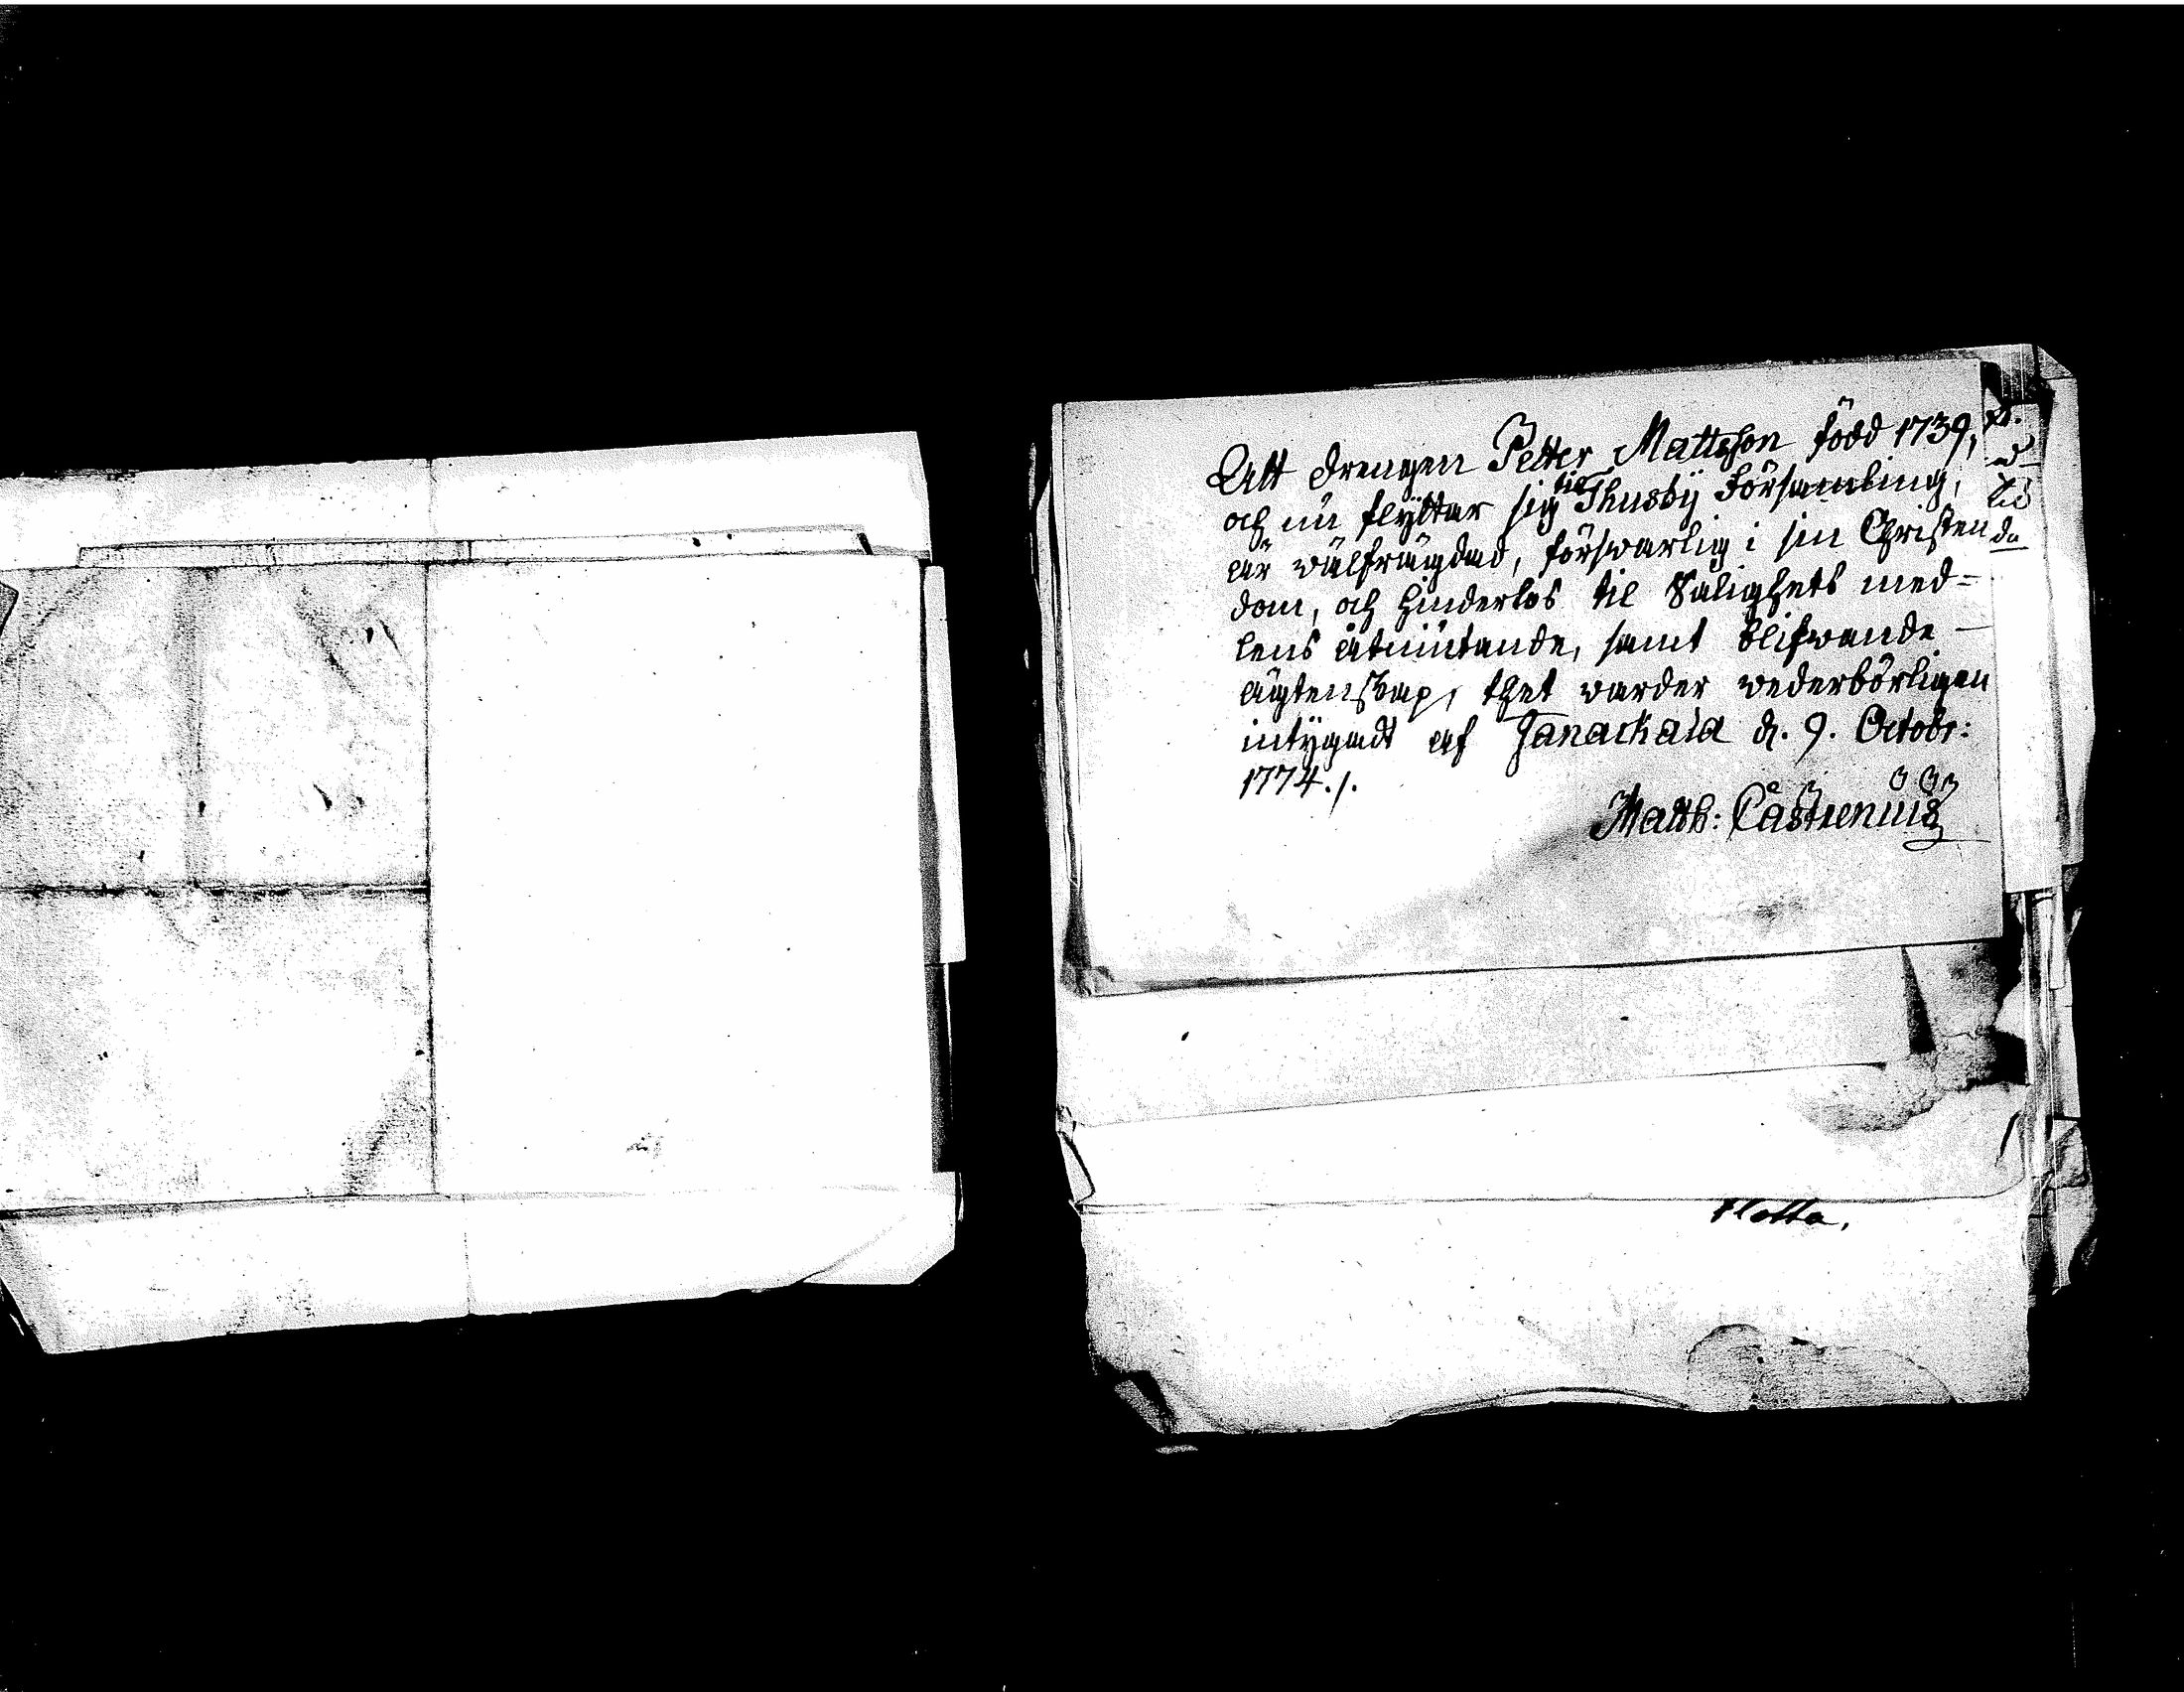 Att Drengen Petter Mattsson född 1739,
och nu flyttar sig til Thusby Församling,
är wälfrägdad, förswarlig i sin Christen
dom, och hinderlös til Salighets med=
lens åtniutande, samt blifwande
ägtenskap, thet warder wederbörligen
intygadt af Janackala d. 9. Octobr:
1774./.
Matth: Castrenius
flotta,